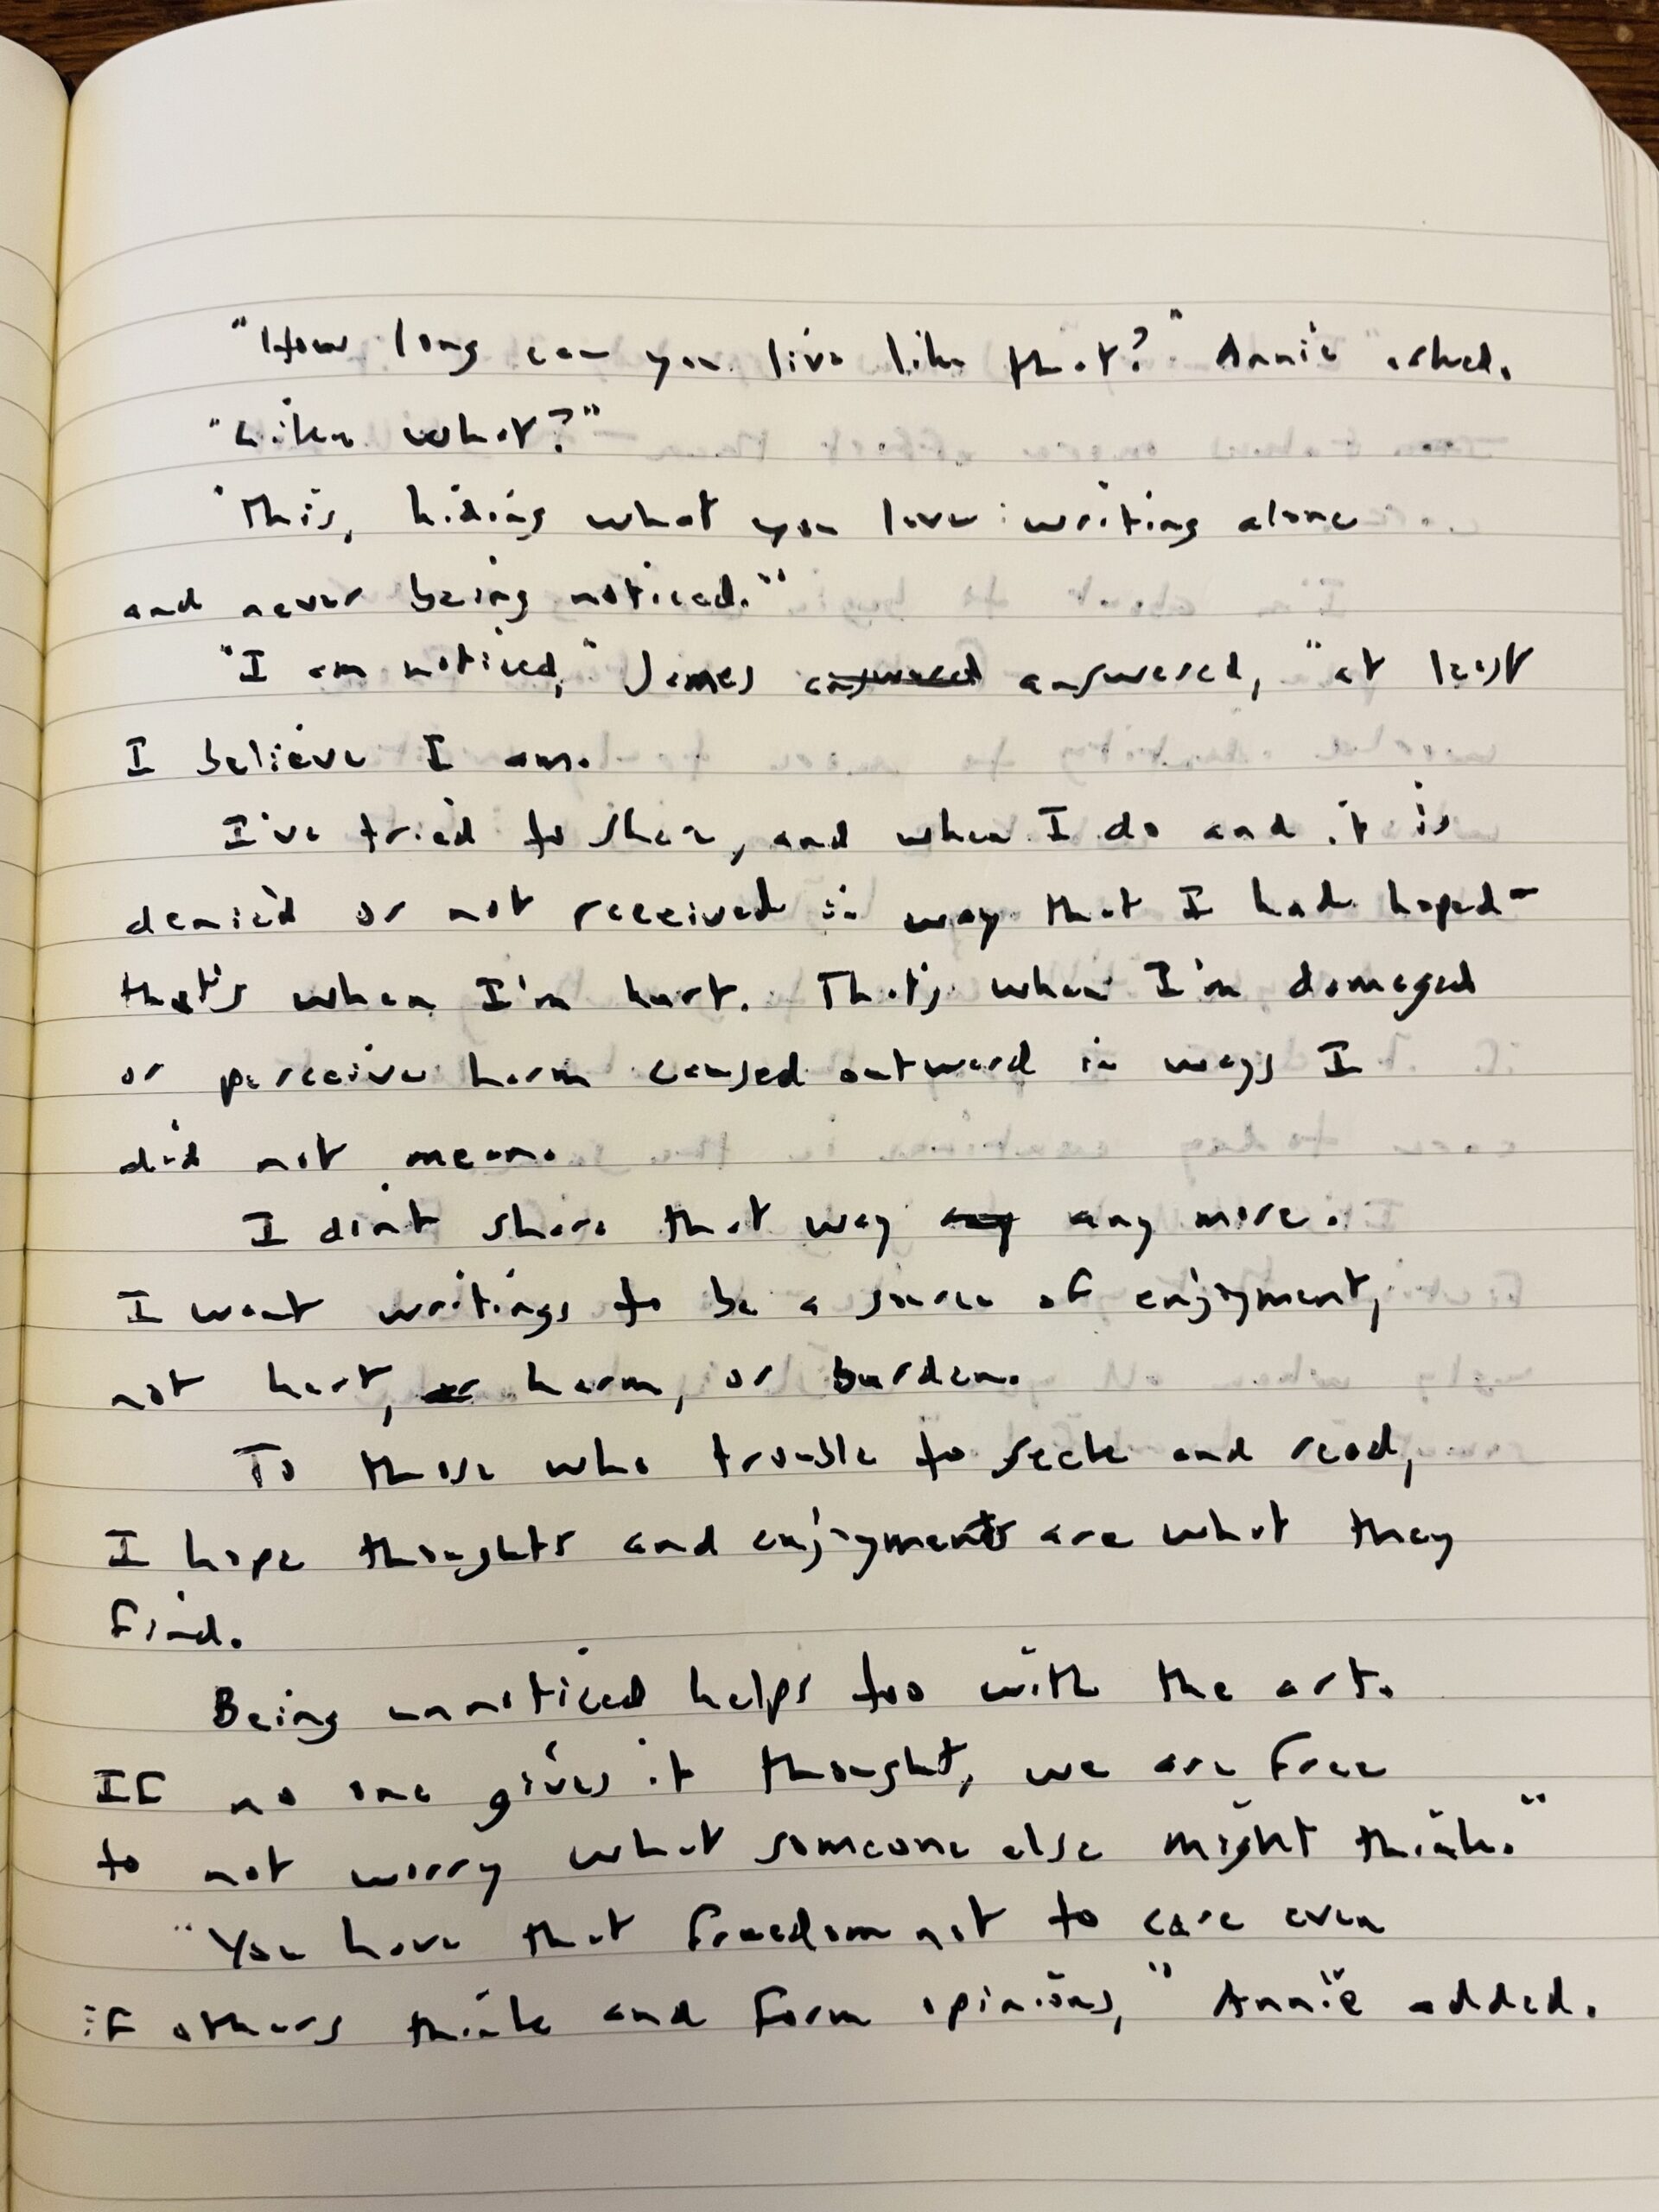 "How long can you live like that?" Annie asked.
"Like what?"
"This, hiding what you love writing alone
and never being noticed."
"I am noticed," James answered answered, "at least
I believe I am.
I've tried to share, and when I do and it is
denied or not received in way that I had hoped-
that's when I'm hurt. That's when I'm damaged
or perceive harm caused outward in ways I
did not mean.
I don't share that way any any more.
I want writings to be a source of enjoyment,
not hurt, or harm, or burden.
To those who trouble to seek and read,
I hope thoughts and enjoyments are what they
find.
Being unnoticed helps too with the art.
If no one gives it thought, we are free
to not worry what someone else might think."
"You have that freedom not to care even
if others think and form opinions," Annie added.